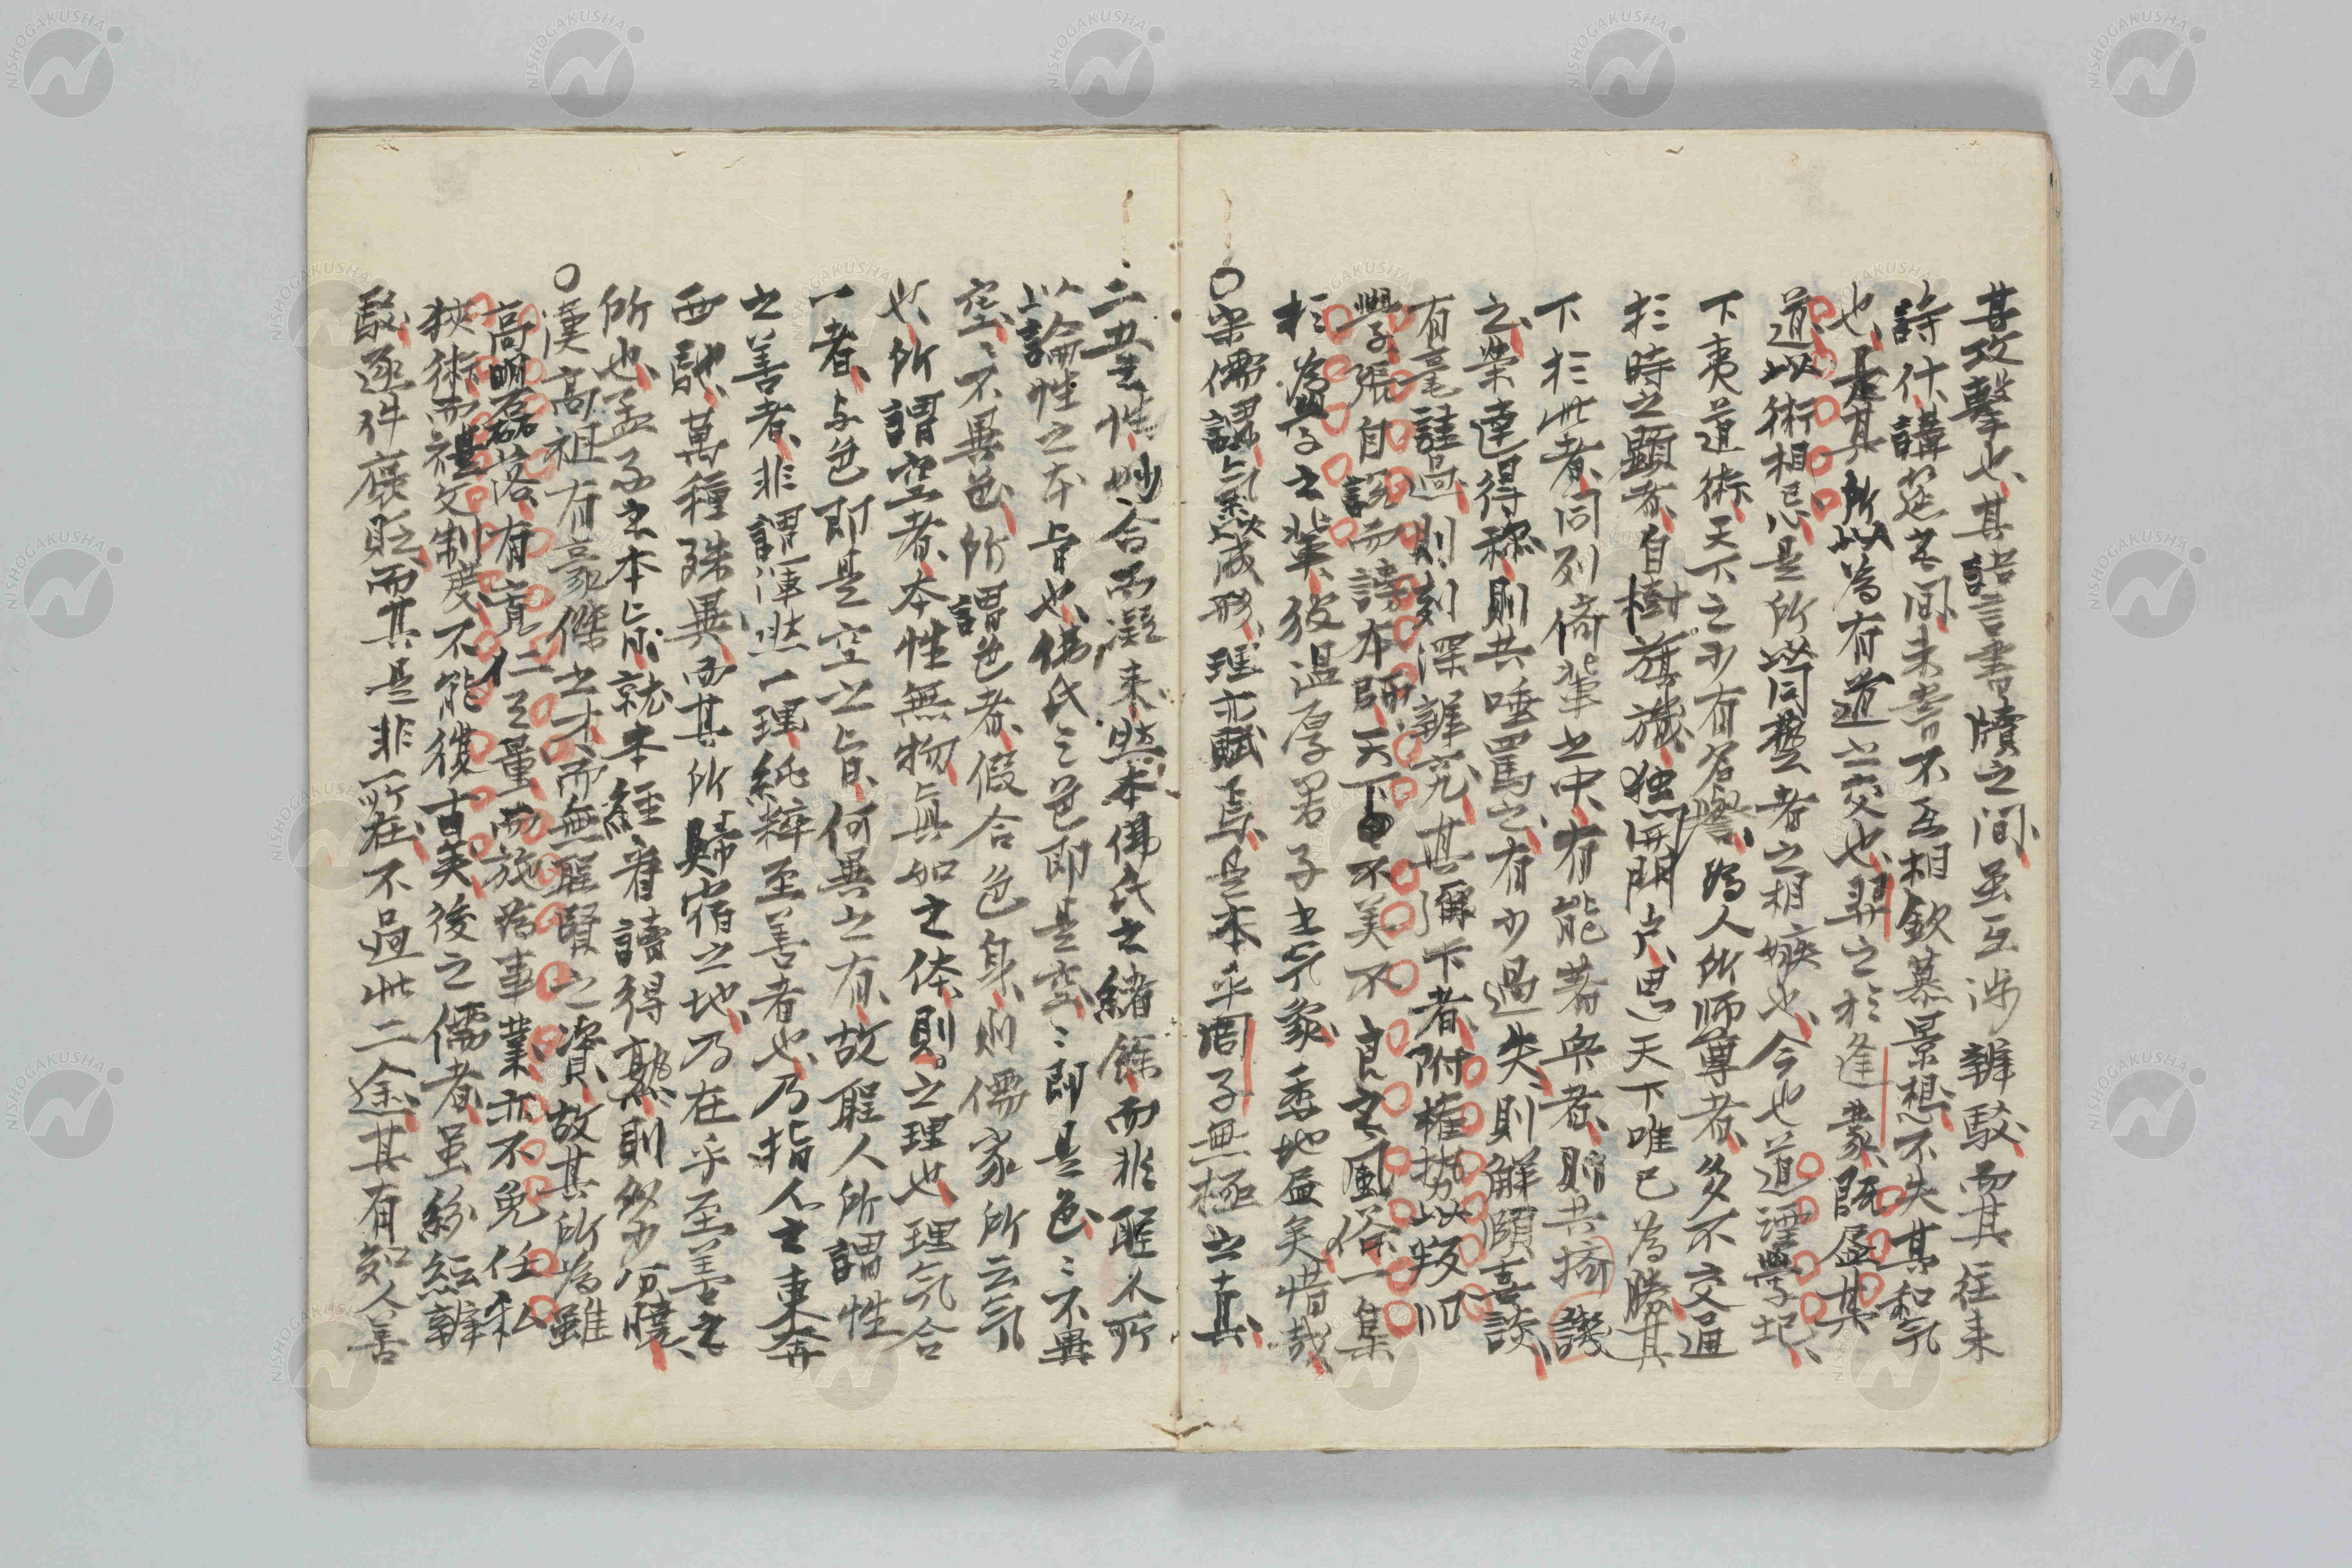 其攻擊也、其語言書牘之間、虽互涉辨駁、而其往来
詩什、講筵之間、未嘗不互相欽慕景想、不失其和氣
也、是其所以為有道之交也、羿之於逢蒙、既盡其
道、以術相忌、是所以同藝者之相嫉也、今也道湮學圮、
下夷道術、天下之少有名譽、為人所师尊者、多不交通
於時之顕者、自樹旗識、独開門戸、思天下唯已為勝其
下於此者、同列倚輩之中、有能著與者、則共擠讒
之、榮達得称、則共唾罵之、有少過失、則解頤喜談、
有毫註過、則刻深辯究、其弥下者、附権勢以叛
學、張自説而謗本師、天下不美不良之風俗一集
於為學之輩、後温厚君子之氣象、委地益矣、惜哉
○宋儒謂氣以成形、理亦賦焉、是本乎周子無極之真、
二五之性、妙合而凝来、與本佛氏之緒餘、而非聖人所
以論性之本旨也、佛氏之色即是空、〻即是色、〻不異
空、〻不異色、所謂色者、假合色身、則儒家所云氣
也、所謂空者、本性無物真如之体、則之理也、理氣合
一者、与色即是空之旨、何異之有、故聖人所謂性
之善者、非謂渾然一理、純粹至善者也、乃指人之東奔
西馳、萬種殊異、而其所歸宿之地、乃在乎至善之
所也、孟子之本旨、就本経看讀得熟、則多少可曉、
○漢高祖有豪傑之才、而無聖賢之資、故其所為雖
高明磊落有寬仁之量、而施為事業、亦不免任私
挾術、而禮文制度、不能復古矣、後之儒者、虽紛紜辨
駁、逐件褒貶、而其是非所在、不過此二途、其有知人善